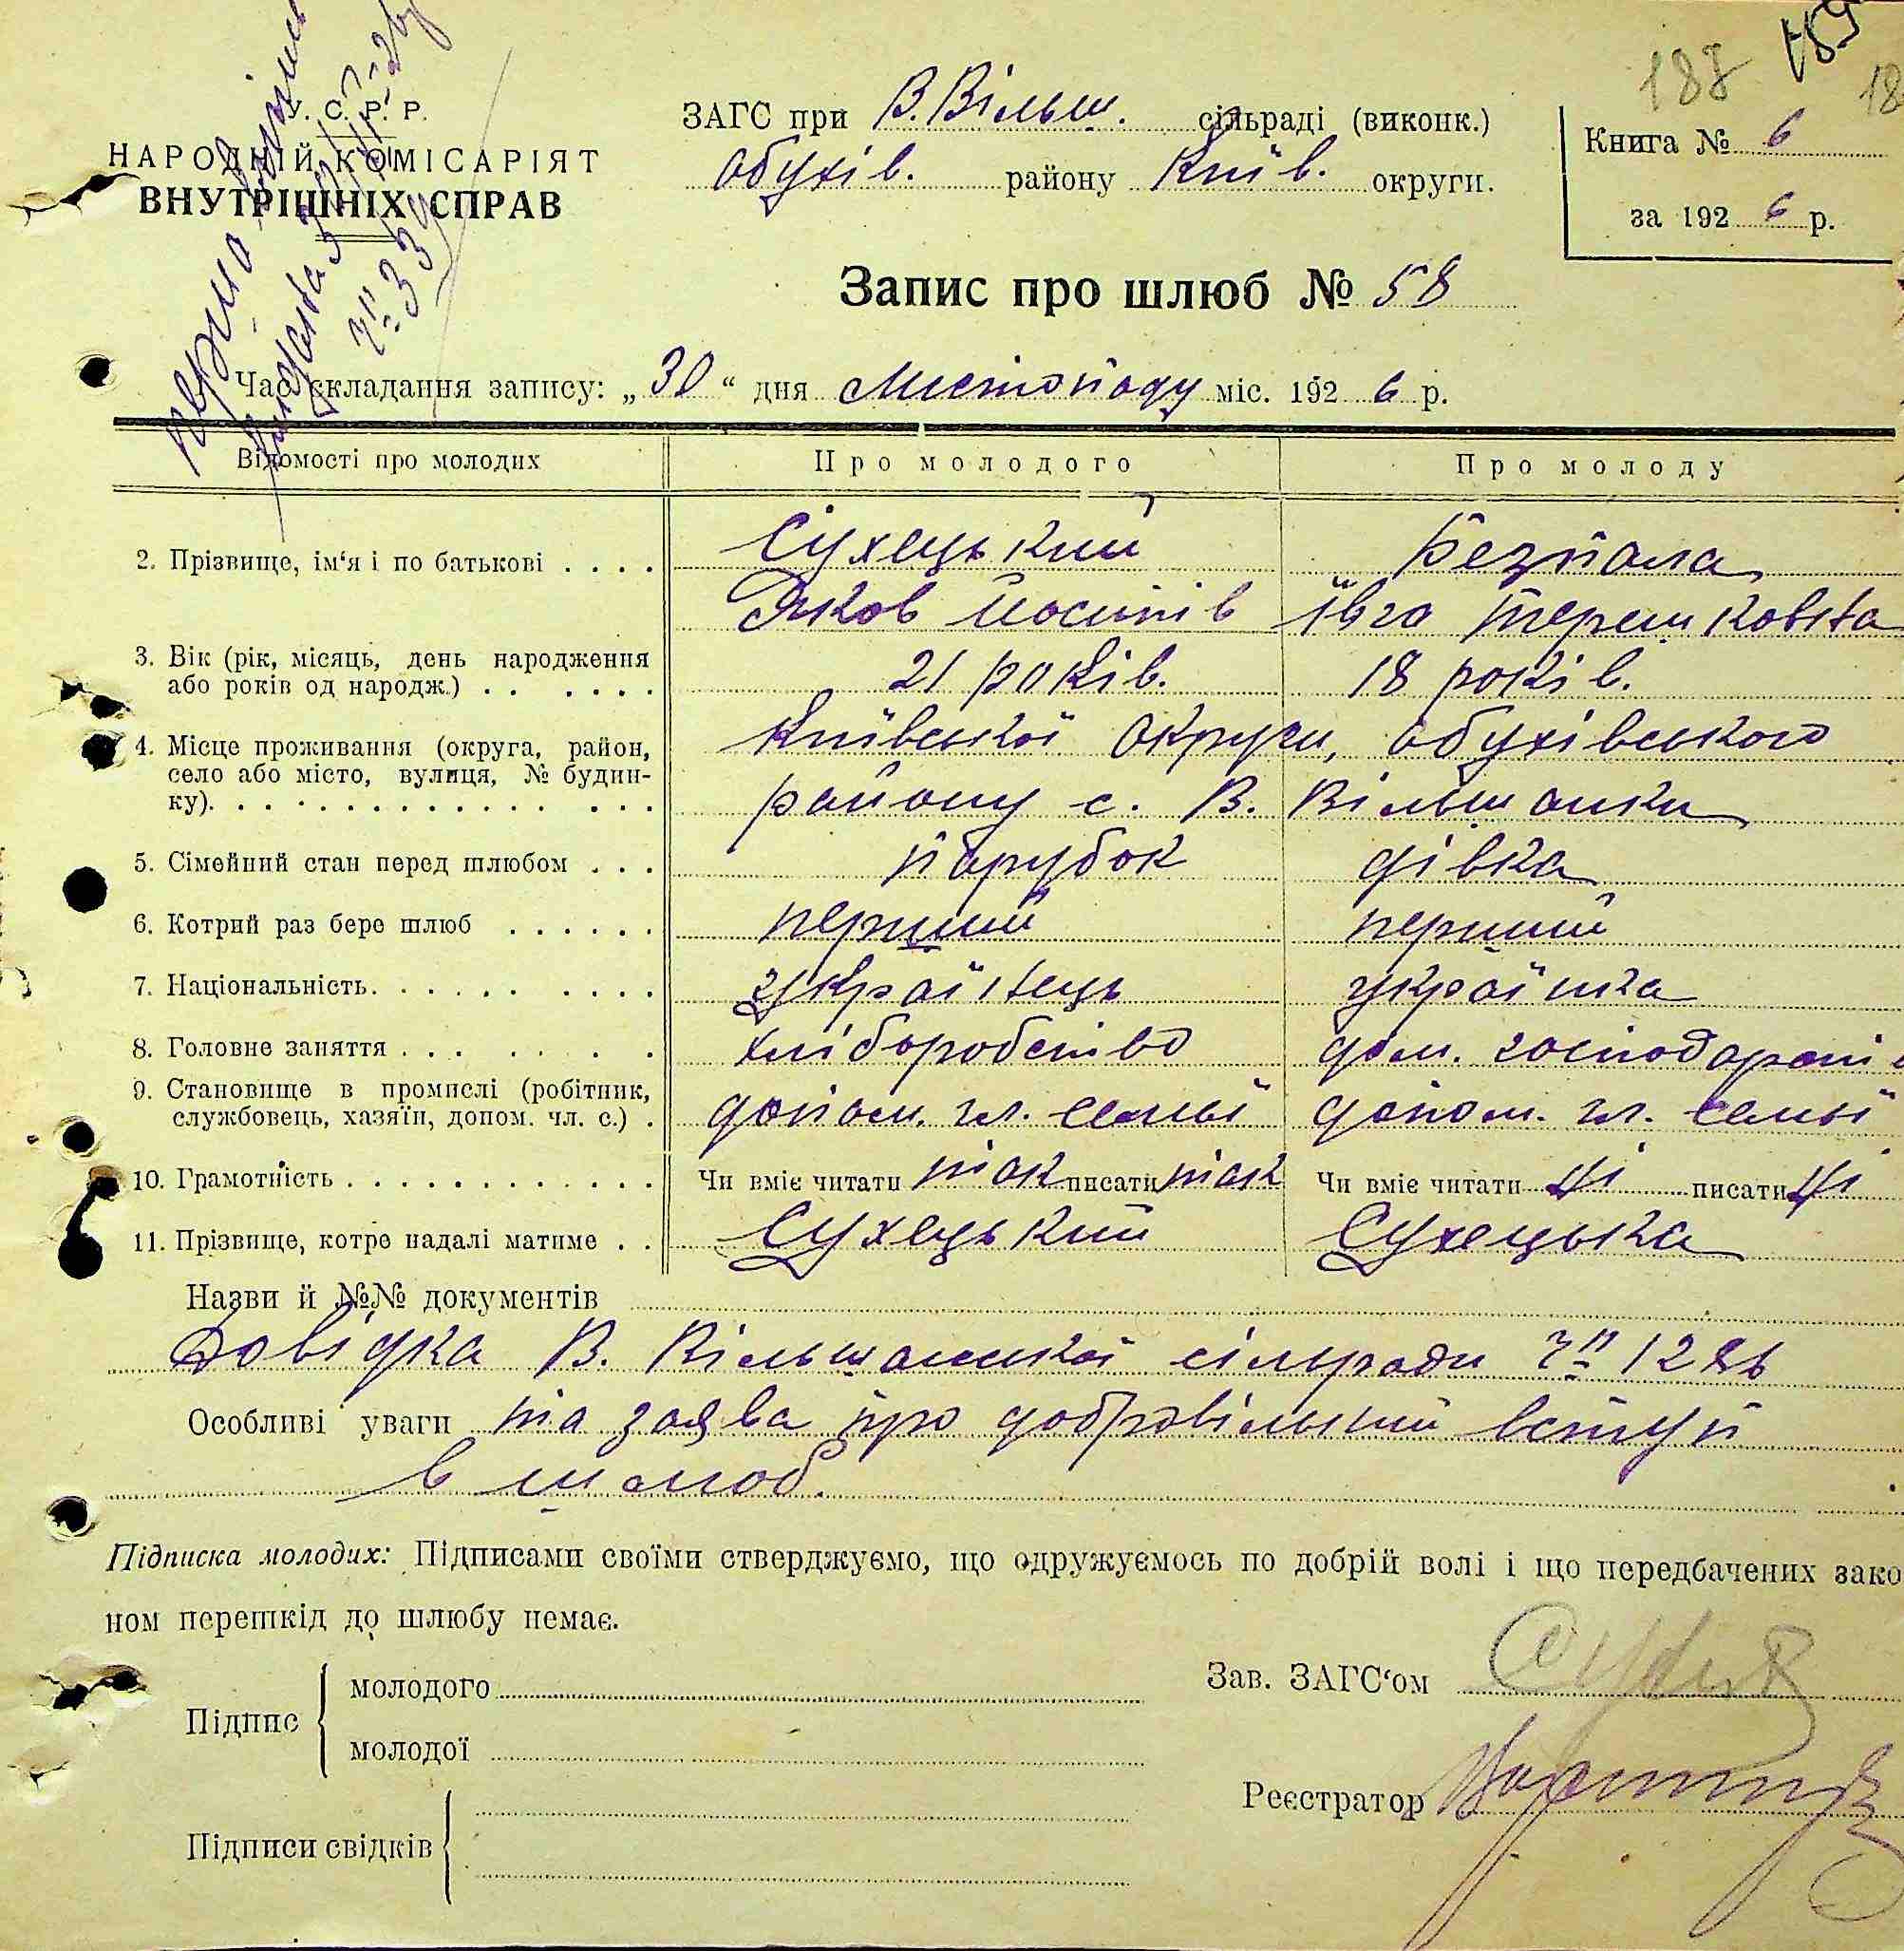 188 189
У. С. Р. Р.
НАРОДНІЙ КОМІСАРІЯТ
ВНУТРІШНІХ СПРАВ
ЗАГС при В. Вільш. сільраді (виконк.)
Обухів. району Київ. округи.
Книга № 6
за 1926 р.
Запис про шлюб № 58
Час складання запису: „30“ дня Листопаду міс. 1926 р.
Відомості про молодих Про молодого Про молоду
2. Прізвище, ім‘я і по батькові . . . . Сухецький Безпала
Яков Йосипів Ївга Терешковна
3. Вік (рік, місяць, день народження
або років од народж.) . . . . . . 21 років. 18 років.
4. Місце проживання (округа, район, Київської округи, Обухівського
село або місто, вулиця, № будин-
ку). . . . . . . . . . . . . . . району с. В. Вільшанки
5. Сімейний стан перед шлюбом . . . парубок дівка
6. Котрий раз бере шлюб . . . . . . перший перший
7. Національність. . . . . . . . . . українець українка
8. Головне заняття . . . . . . . хліборобство дом. господарств
9. Становище в промислі (робітник,
службовець, хазяїн, допом. чл. с.) . допом. чл. семьї допом. чл. семьї
10. Грамотність . . . . . . . . . . . . Чи вміє читати так писати так Чи вміє читати ні писати ні
11. Прізвище, котре надалі матиме . . Сухецький Сухецька
Назви й №№ документів
Довідка В. Вільшанської сільради чп
Особливі уваги та заява про добровільний вступ
в шлюб.
Підписка молодих: Підписами своїми стверджуємо, що одружуємось по добрій волі і що передбачених зако
ном перешкід до шлюбу немає.
Підпис
молодого
молодої
Підписи свідків
Зав. ЗАГС‘ом
Реєстратор